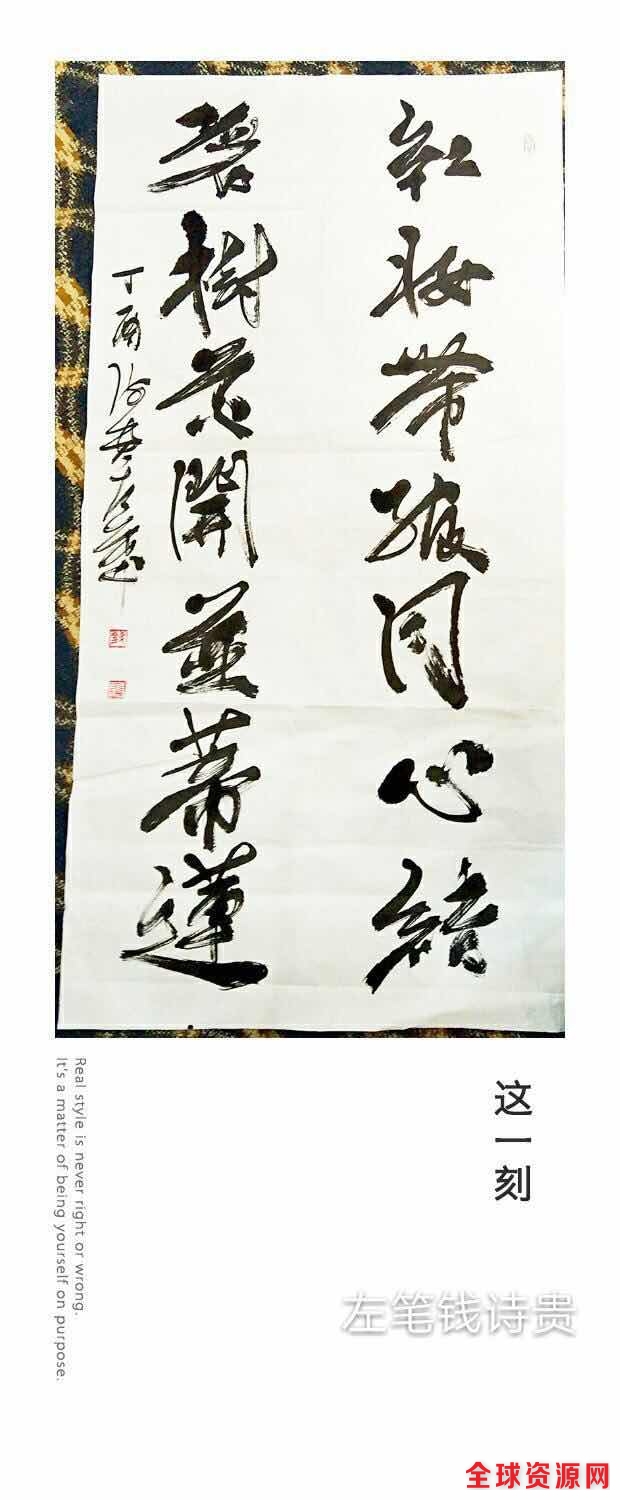 紅妝帶綰同心結
碧樹花開並蒂蓮
丁酉
这一刻
左笔钱诗贵
Real style is never right or wrong.
It's a matter of being yourself on purpose.
全球资源网